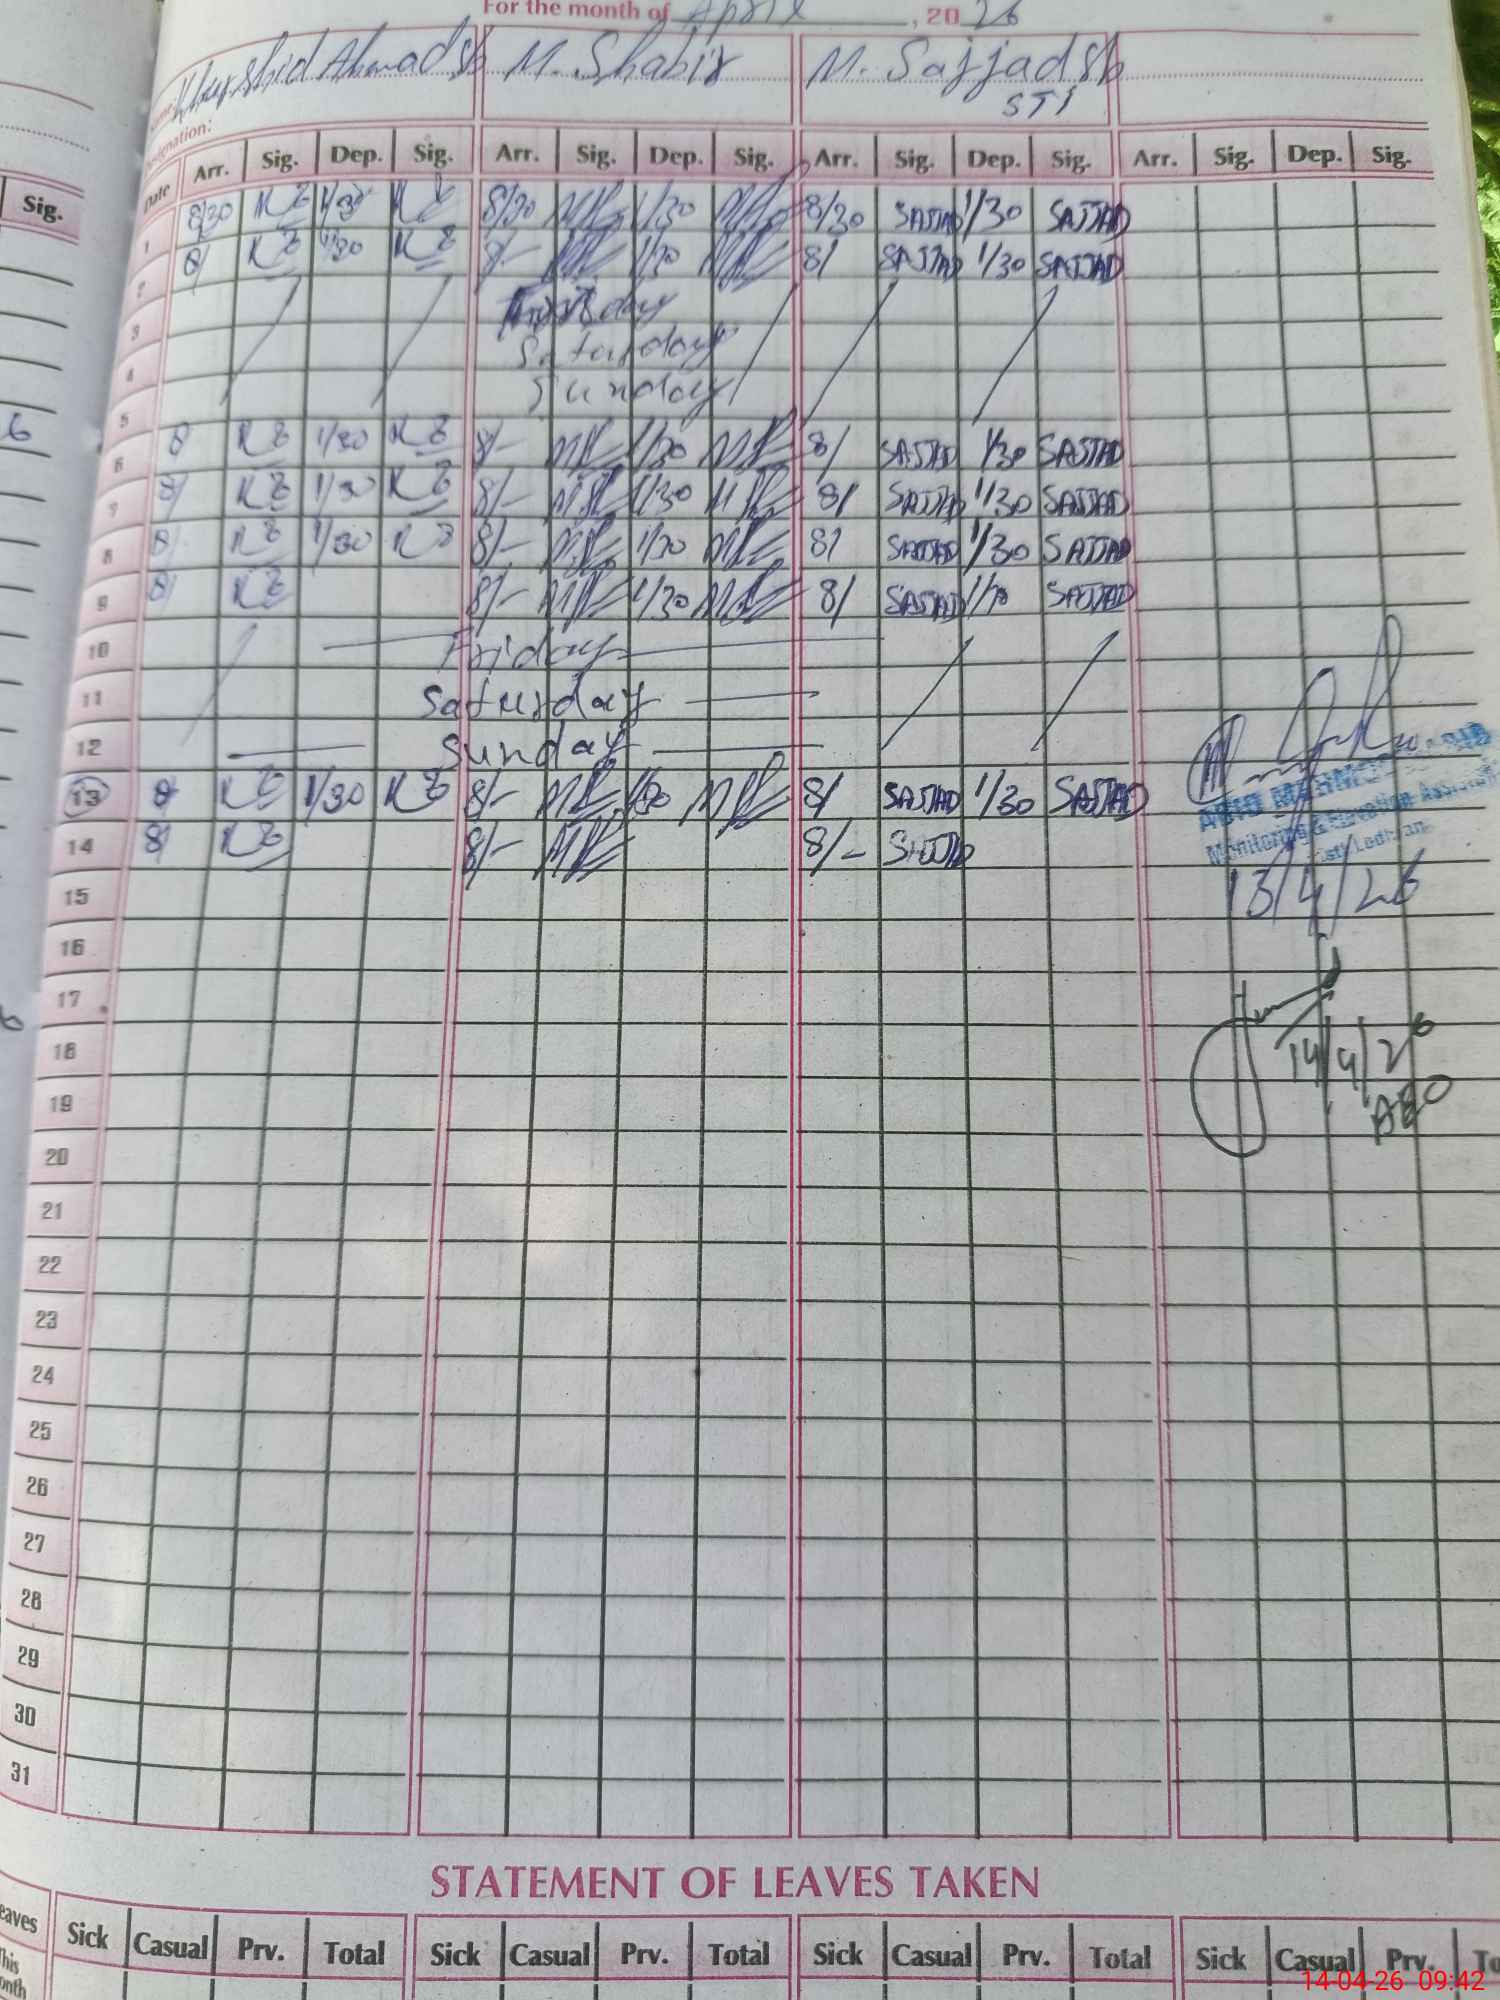 For the month of April, 2026
Name: Khurshid Ahmad Sb M. Shabir M. Sajjad Sb
Designation: STI
Date Arr. Sig. Dep. Sig. Arr. Sig. Dep. Sig. Arr. Sig. Dep. Sig. Arr. Sig. Dep. Sig.
Sig.
1 8/30 1/30 8/30 1/30 8/30 SAJJAD 1/30 SAJJAD
2 8/ 1/30 8/- 1/30 8/ SAJJAD 1/30 SAJJAD
3
4 Saturday
5 Sunday
6 8 1/30 8/- 1/30 8/ SAJJAD 1/30 SAJJAD
7 8/ 1/30 8/- 1/30 8/ SAJJAD 1/30 SAJJAD
8 8/ 1/30 8/- 1/30 8/ SAJJAD 1/30 SAJJAD
9 8/ 8/- 1/30 8/ SAJJAD 1/30 SAJJAD
10 Friday
11 Saturday
12 Sunday
13 8 1/30 8/- 1/30 8/ SAJJAD 1/30 SAJJAD
14 8/ 8/- 8/- SAJJAD
Monitoring &
13/4/26
15
16
17
18
14/4/26
19
AEO
20
21
22
23
24
25
26
27
28
29
30
31
STATEMENT OF LEAVES TAKEN
Leaves Sick Casual Prv. Total Sick Casual Prv. Total Sick Casual Prv. Total Sick Casual Prv.
This
14-04-26 09:42